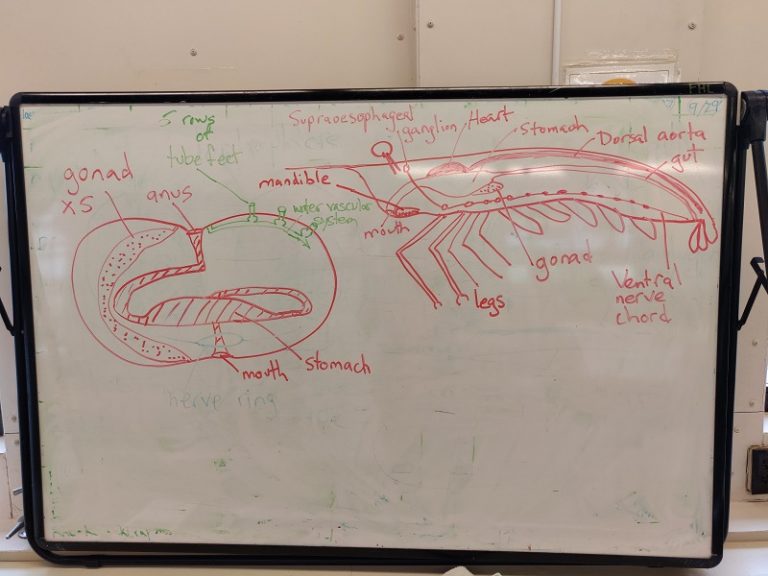 9/29
5 rows
of
tube feet
gonad
x5
anus
water vascular
system
mouth
stomach
nerve ring
Supraoesophageal
ganglion
Heart
Stomach
Dorsal aorta
gut
mandible
mouth
gonad
legs
Ventral
nerve
chord